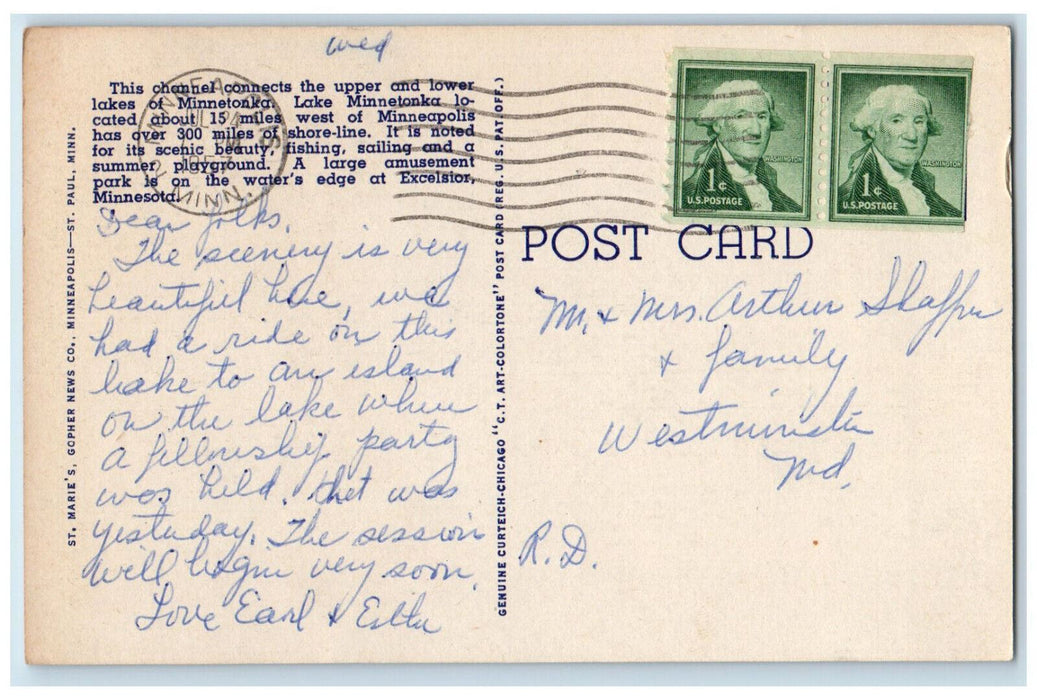 wed
This channel connects the upper and lower
lakes of Minnetonka. Lake Minnetonka lo-
cated about 15 miles west of Minneapolis
has over 300 miles of shore-line. It is noted
for its scenic beauty, fishing, sailing and a
summer playground. A large amusement
park is on the water's edge at Excelsior,
Minnesota.
MINNEAPOLIS
1957
MINN.
Dear folks,
The scenery is very
beautiful here, we
had a ride on this
lake to an island
on the lake where
a fellowship party
was held. that was
yesterday. The session
will begin very soon.
Love Earl & Esther
ST. MARIE'S, GOPHER NEWS CO., MINNEAPOLIS—ST. PAUL, MINN.
GENUINE CURTEICH-CHICAGO "C.T. ART-COLORTONE" POST CARD (REG. U.S. PAT. OFF.)
WASHINGTON
1¢
U.S. POSTAGE
WASHINGTON
1¢
U.S. POSTAGE
POST CARD
Mr. & Mrs. Arthur Shaffer
& family
Westminster
Md.
R.D.